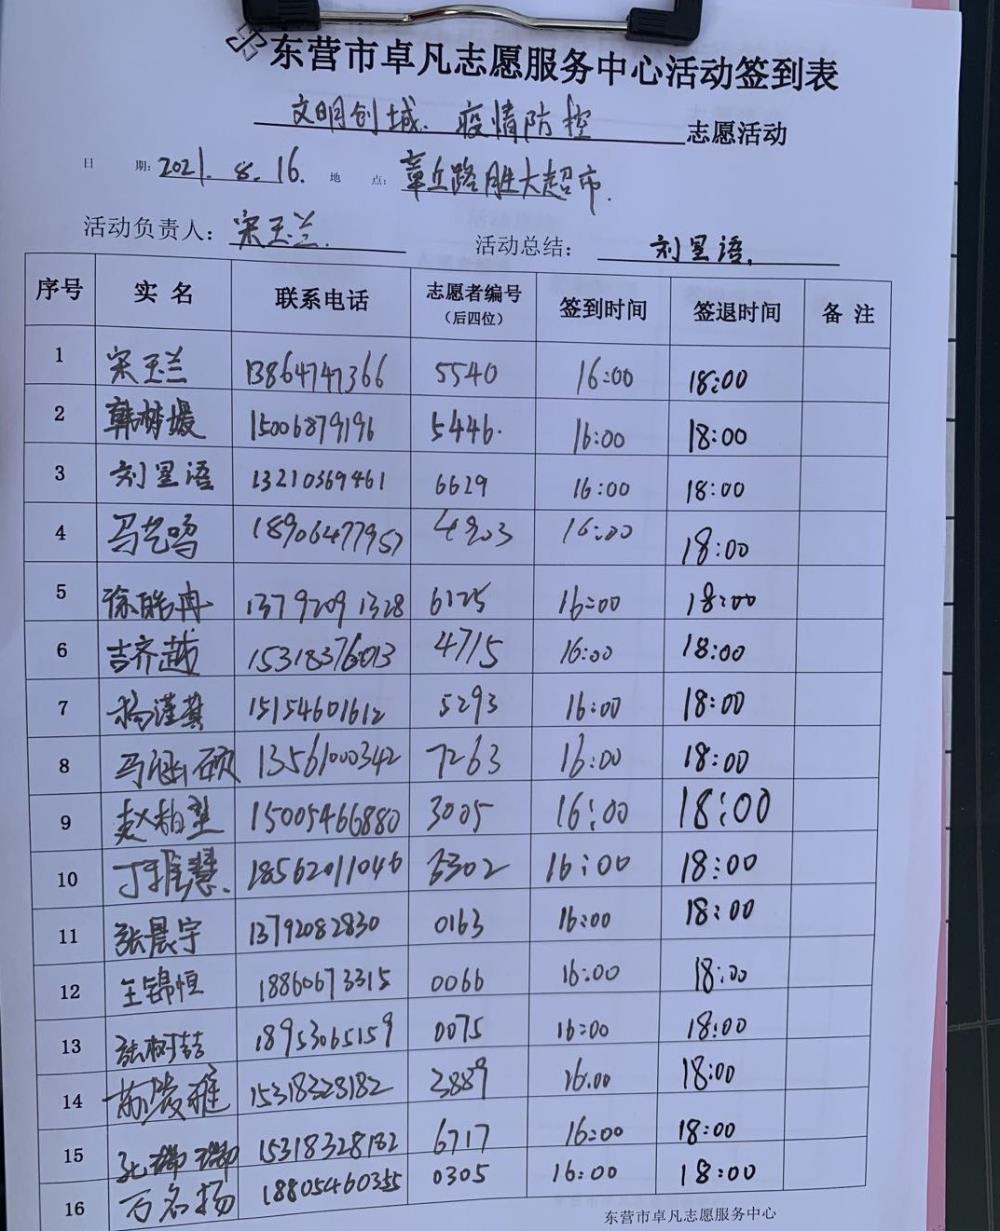 东营市卓凡志愿服务中心活动签到表
文明创城、疫情防控 志愿活动
日 期: 2021.8.16. 地 点: 章丘路胜大超市.
活动负责人: 宋玉兰. 活动总结: 刘星语.
序号 实 名 联系电话 志愿者编号 (后四位) 签到时间 签退时间 备 注
1 宋玉兰 13864747366 5540 16:00 18:00
2 韩梦媛 15006879196 5446. 16:00 18:00
3 刘星语 13210369461 6629 16:00 18:00
4 马艺鸣 18906477957 4903 16:00 18:00
5 徐皓冉 13792091328 6125 16:00 18:00
6 吉齐越 15318376013 4715 16:00 18:00
7 杨谨萁 15154601612 5293 16:00 18:00
8 马涵硕 13561000342 7263 16:00 18:00
9 赵柏堃 15005466880 3005 16:00 18:00
10 丁雅慧. 18562011046 3302 16:00 18:00
11 张晨宇 13792082830 0163 16:00 18:00
12 王锦恒 18860673315 0066 16:00 18:00
13 张树喆 18953065159 0075 16:00 18:00
14 15318328182 2889 16:00 18:00
15 孔瑞瑞 15318328182 6717 16:00 18:00
16 万名扬 18805460355 0305 16:00 18:00
东营市卓凡志愿服务中心